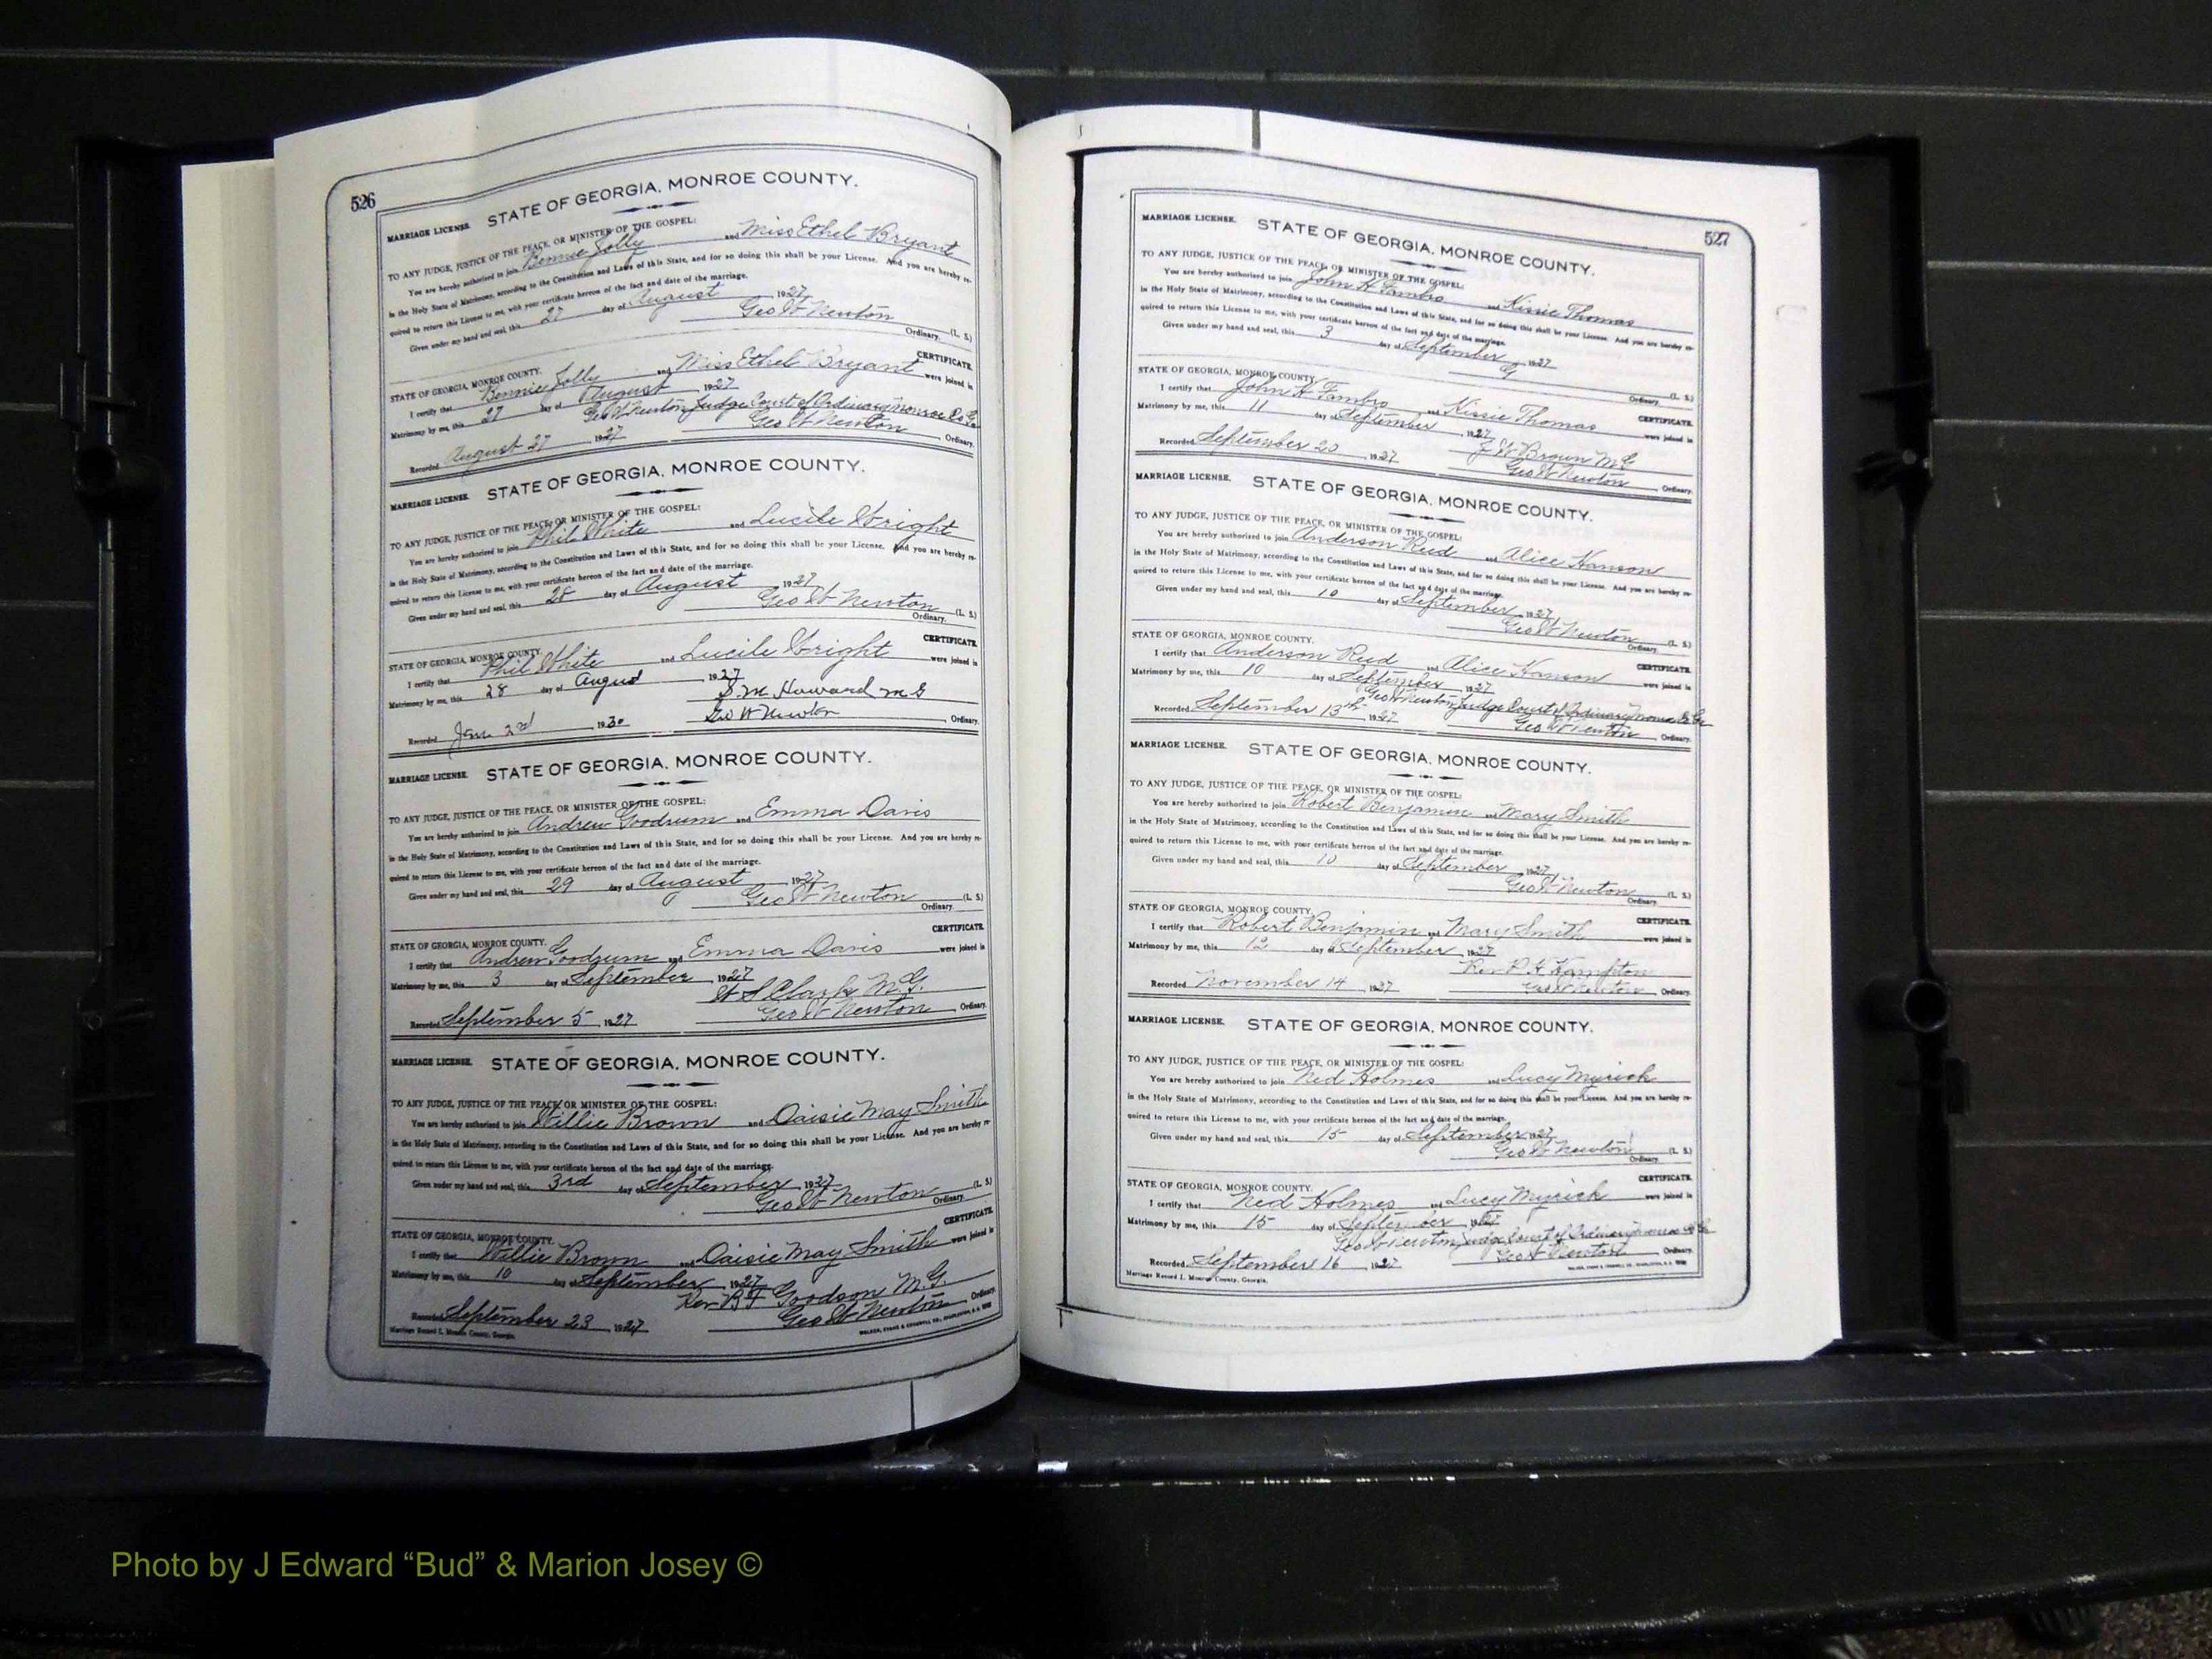 526
MARRIAGE LICENSE. STATE OF GEORGIA, MONROE COUNTY.
TO ANY JUDGE, JUSTICE OF THE PEACE, OR MINISTER OF THE GOSPEL:
You are hereby authorized to join Bennie Jolly and Miss Ethel Bryant
in the Holy State of Matrimony, according to the Constitution and Laws of this State, and for so doing this shall be your License. And you are hereby re-
quired to return this License to me, with your certificate hereon of the fact and date of the marriage.
Given under my hand and seal, this 27 day of August 1927
Geo W Newton (L. S.)
Ordinary.
CERTIFICATE.
STATE OF GEORGIA, MONROE COUNTY.
I certify that Bennie Jolly and Miss Ethel Bryant were joined in
Matrimony by me, this 27 day of August 1927
Geo W Newton Judge Court of Ordinary Monroe Co Ga
Recorded August 27 1927 Geo W Newton Ordinary.
MARRIAGE LICENSE. STATE OF GEORGIA, MONROE COUNTY.
TO ANY JUDGE, JUSTICE OF THE PEACE, OR MINISTER OF THE GOSPEL:
You are hereby authorized to join Phil White and Lucile Wright
in the Holy State of Matrimony, according to the Constitution and Laws of this State, and for so doing this shall be your License. And you are hereby re-
quired to return this License to me, with your certificate hereon of the fact and date of the marriage.
Given under my hand and seal, this 28 day of August 1927
Geo W Newton (L. S.)
Ordinary.
CERTIFICATE.
STATE OF GEORGIA, MONROE COUNTY.
I certify that Phil White and Lucile Wright were joined in
Matrimony by me, this 28 day of August 1927
S. M. Howard M G
Recorded Jan 2nd 1930 Geo W Newton Ordinary.
MARRIAGE LICENSE. STATE OF GEORGIA, MONROE COUNTY.
TO ANY JUDGE, JUSTICE OF THE PEACE, OR MINISTER OF THE GOSPEL:
You are hereby authorized to join Andrew Goodrum and Emma Davis
in the Holy State of Matrimony, according to the Constitution and Laws of this State, and for so doing this shall be your License. And you are hereby re-
quired to return this License to me, with your certificate hereon of the fact and date of the marriage.
Given under my hand and seal, this 29 day of August 1927
Geo W Newton (L. S.)
Ordinary.
CERTIFICATE.
STATE OF GEORGIA, MONROE COUNTY.
I certify that Andrew Goodrum and Emma Davis were joined in
Matrimony by me, this 3 day of September 1927
W S Clark M.G.
Recorded September 5 1927 Geo W Newton Ordinary.
MARRIAGE LICENSE. STATE OF GEORGIA, MONROE COUNTY.
TO ANY JUDGE, JUSTICE OF THE PEACE, OR MINISTER OF THE GOSPEL:
You are hereby authorized to join Willie Brown and Daisie May Smith
in the Holy State of Matrimony, according to the Constitution and Laws of this State, and for so doing this shall be your License. And you are hereby re-
quired to return this License to me, with your certificate hereon of the fact and date of the marriage.
Given under my hand and seal, this 3rd day of September 1927
Geo W Newton (L. S.)
Ordinary.
CERTIFICATE.
STATE OF GEORGIA, MONROE COUNTY.
I certify that Willie Brown and Daisie May Smith were joined in
Matrimony by me, this 10 day of September 1927
Rev B F Goodson M.G.
Recorded September 23 1927 Geo W Newton Ordinary.
Marriage Record I. Monroe County, Georgia.
527
MARRIAGE LICENSE. STATE OF GEORGIA, MONROE COUNTY.
TO ANY JUDGE, JUSTICE OF THE PEACE, OR MINISTER OF THE GOSPEL:
You are hereby authorized to join John H Fambro and Kissie Thomas
in the Holy State of Matrimony, according to the Constitution and Laws of this State, and for so doing this shall be your License. And you are hereby re-
quired to return this License to me, with your certificate hereon of the fact and date of the marriage.
Given under my hand and seal, this 3 day of September 1927
G (L. S.)
Ordinary.
STATE OF GEORGIA, MONROE COUNTY. CERTIFICATE.
I certify that John H Fambro and Kissie Thomas were joined in
Matrimony by me, this 11 day of September 1927
J W Brown M G
Recorded September 20 1927 Geo W Newton Ordinary.
MARRIAGE LICENSE. STATE OF GEORGIA, MONROE COUNTY.
TO ANY JUDGE, JUSTICE OF THE PEACE, OR MINISTER OF THE GOSPEL:
You are hereby authorized to join Anderson Reid and Alice Hanson
in the Holy State of Matrimony, according to the Constitution and Laws of this State, and for so doing this shall be your License. And you are hereby re-
quired to return this License to me, with your certificate hereon of the fact and date of the marriage.
Given under my hand and seal, this 10 day of September 1927
Geo W Newton (L. S.)
Ordinary.
STATE OF GEORGIA, MONROE COUNTY. CERTIFICATE.
I certify that Anderson Reid and Alice Hanson were joined in
Matrimony by me, this 10 day of September 1927
Geo W Newton Judge Court of Ordinary Monroe Co Ga
Recorded September 13th 1927 Geo W Newton Ordinary.
MARRIAGE LICENSE. STATE OF GEORGIA, MONROE COUNTY.
TO ANY JUDGE, JUSTICE OF THE PEACE, OR MINISTER OF THE GOSPEL:
You are hereby authorized to join Robert Benjamin and Mary Smith
in the Holy State of Matrimony, according to the Constitution and Laws of this State, and for so doing this shall be your License. And you are hereby re-
quired to return this License to me, with your certificate hereon of the fact and date of the marriage.
Given under my hand and seal, this 10 day of September 1927
Geo W Newton (L. S.)
Ordinary.
STATE OF GEORGIA, MONROE COUNTY. CERTIFICATE.
I certify that Robert Benjamin and Mary Smith were joined in
Matrimony by me, this 12 day of September 1927
Rev P H Hampton
Recorded November 14 1927 Geo W Newton Ordinary.
MARRIAGE LICENSE. STATE OF GEORGIA, MONROE COUNTY.
TO ANY JUDGE, JUSTICE OF THE PEACE, OR MINISTER OF THE GOSPEL:
You are hereby authorized to join Ned Holmes and Lucy Myrick
in the Holy State of Matrimony, according to the Constitution and Laws of this State, and for so doing this shall be your License. And you are hereby re-
quired to return this License to me, with your certificate hereon of the fact and date of the marriage.
Given under my hand and seal, this 15 day of September 1927
Geo W Newton (L. S.)
Ordinary.
STATE OF GEORGIA, MONROE COUNTY. CERTIFICATE.
I certify that Ned Holmes and Lucy Myrick were joined in
Matrimony by me, this 15 day of September 1927
Geo W Newton Judge Court of Ordinary Monroe Co Ga
Recorded September 16 1927 Geo W Newton Ordinary.
Marriage Record I. Monroe County, Georgia.
Photo by J Edward “Bud” & Marion Josey ©